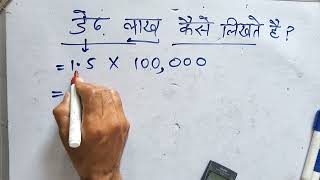 डेढ़ लाख कैसे लिखते है ?
= 1.5 X 100,000
=